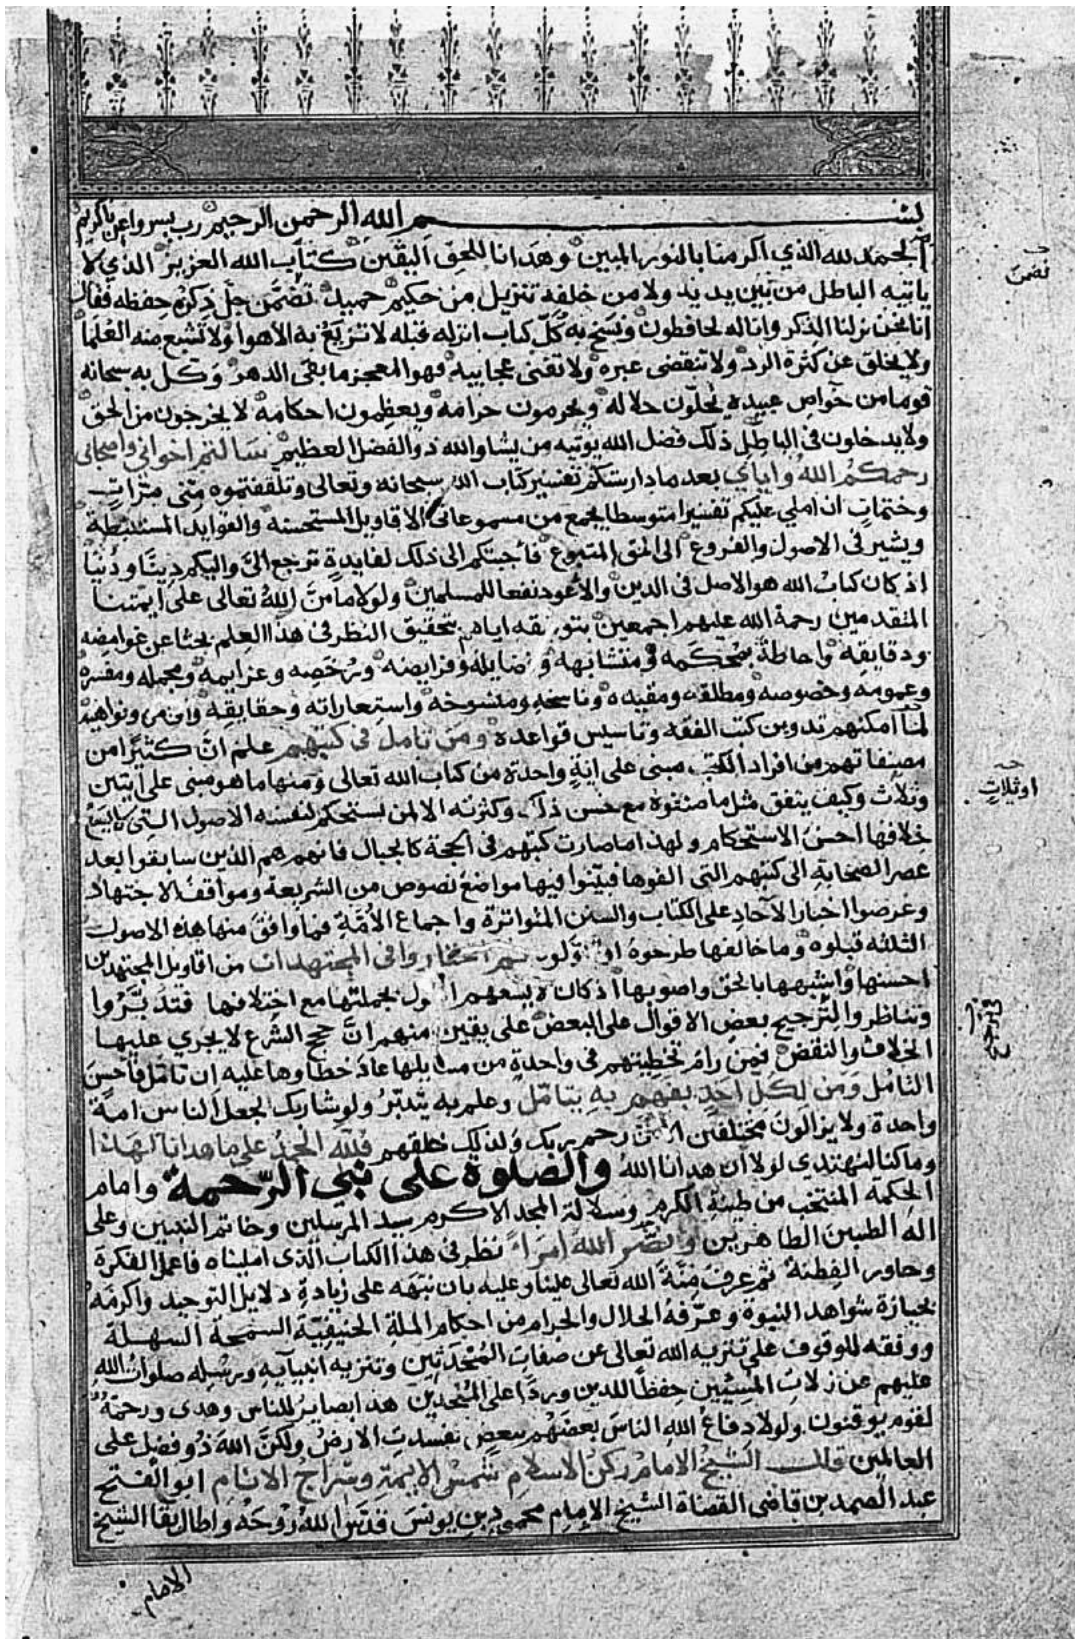 بسم الله الرحمن الرحيم رب يسر واعن يا كريم
الحمد لله الذي اكرمنا بالنور المبين وهدانا للحق اليقين كتاب الله العزيز الذي لا
ياتيه الباطل من بين يديه ولا من خلفه تنزيل من حكيم حميد تضمن جل ذكره حفظه فقال
انا نحن نزلنا الذكر وانا له لحافظون ونسخ به كل كتاب انزله قبله لا تزيغ به الاهوا ولا تشبع منه العلما
ولا يخلق عن كثرة الرد ولا تنقضي عبره ولا تفنى عجايبه فهو المعجز ما بقى الدهر وكل به سبحانه
قوما من خواص عبيده يحلّون حلاله ويحرمون حرامه ويعظمون احكامه لا يخرجون من الحق
ولا يدخلون في الباطل ذلك فضل الله يوتيه من يشا والله ذو الفضل العظيم سالتم اخواني واصحابي
رحمكم الله واياي بعد ما دارستكم تفسير كتاب الله سبحانه وتعالى وتلقفتموه مني مرات
وختمات ان املي عليكم تفسيرا متوسطا يجمع من مسموعاتي الاقاويل المستحسنه والفوايد المستنبطة
ويشير في الاصول والفروع الى الحق المتبوع فاجبتكم الى ذلك لفايدة ترجع الي واليكم دينا ودنيا
اذ كان كتاب الله هو الاصل في الدين والأعود نفعا للمسلمين ولولا ما من الله تعالى على ايمتنا
المتقدمين رحمة الله عليهم اجمعين بتوفيقه اياهم بتحقيق النظر في هذا العلم بحثا عن غوامضه
ودقايقه واحاطة بمحكمه ومتشابهه وفضايله وفرايضه ورخصه وعزايمه ومجمله ومفسره
وعمومه وخصوصه ومطلقه ومقيده وناسخه ومنسوخه واستعاراته وحقايقه واوامره ونواهيه
لما امكنهم تدوين كتب الفقه وتاسيس قواعده ومن تامل في كتبهم علم ان كثيرا من
مصنفاتهم من افراد الكتب مبنى على اية واحدة من كتاب الله تعالى ومنها ما هو مبنى على ايتين
وثلاث وكيف يتفق مثل ما صنفوه مع حسن ذلك وكثرته الا لمن يستحكم لنفسه الاصول التي لا يسع
خلافها احسن الاستحكام ولهذا ما صارت كتبهم في الحجة كالجبال فانهم هم الذين سابقوا بعد
عصر الصحابة الى كتبهم التي الفوها فبيّنوا فيها مواضع نصوص من الشريعة ومواقف الاجتهاد
وعرضوا اخبار الآحاد على الكتاب والسنن المتواترة واجماع الأمة فما وافق منها هذه الاصول
الثلثه قبلوه وما خالفها طرحوه او اوّلوه ثم اختاروا في المجتهدات من اقاويل المجتهدين
احسنها واشبهها بالحق واصوبها اذ كان لا يسعهم القول بجملتها مع اختلافها فتدبّروا
وتناظروا لترجيح بعض الاقوال على البعض على يقين منهم ان حجج الشرع لا يجري عليها
الخلاف والنقض فمن رام تخطيتهم في واحدة من مسايلها عاد خطاوها عليه ان تامل فاحسن
التامل ومن لكل احد بفهم به يتامل وعلم به يتدبر ولو شا ربك لجعل الناس امة
واحدة ولا يزالون مختلفين الا من رحم ربك ولذلك خلقهم فلله الحمد على ما هدانا لهذا
وما كنا لنهتدي لولا ان هدانا الله والصلوة على نبي الرحمة وامام
الحكمة المنتخب من طينة الكرم وسلالة المجد الاكرم سيد المرسلين وخاتم النبيين وعلى
اله الطيبين الطاهرين ونضر الله امرأ نظر في هذا الكتاب الذي امليناه فاعمل الفكرة
وحاور الفطنة ثم عرف منة الله تعالى علينا وعليه بان نبهه على زيادة دلايل التوحيد واكرمه
بحيازة شواهد النبوة وعرّفه الحلال والحرام من احكام الملة الحنيفية السمحة السهلة
ووفقه للوقوف على تنزيه الله تعالى عن صفات المحدثين وتنزيه انبيايه ورسله صلوات الله
عليهم عن زلات المسيئين حفظا للدين وردا على الملحدين هذا بصاير للناس وهدى ورحمة
لقوم يوقنون ولولا دفاع الله الناس بعضهم ببعض لفسدت الارض ولكن الله ذو فضل على
العالمين قال الشيخ الامام ركن الاسلام شمس الايمة وسراج الانام ابو الفتح
عبد الصمد بن قاضي القضاة الشيخ الإمام محمود بن يونس قدس الله روحه واطال بقا الشيخ
الامام
تضمن
او ثلاث